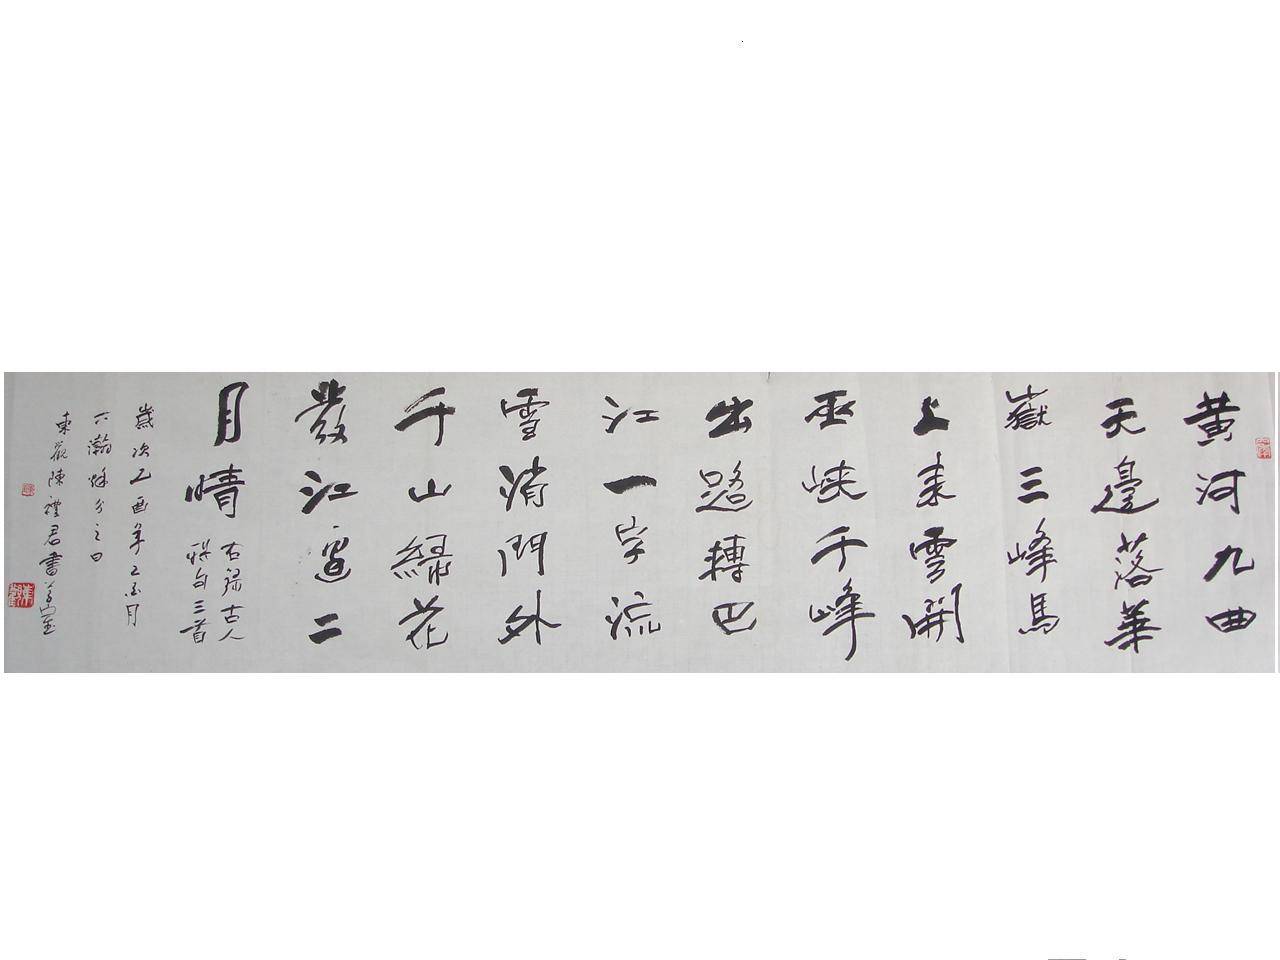 黄河九曲
天邊落華
嶽三峰馬
上来雲開
巫峡千峰
出路轉巴
江一字流
雪消門外
千山緑花
發江邊二
月晴
右録古人
聯句三首
歲次乙酉年乙酉月
下瀚
之日
東莞陳禮君書